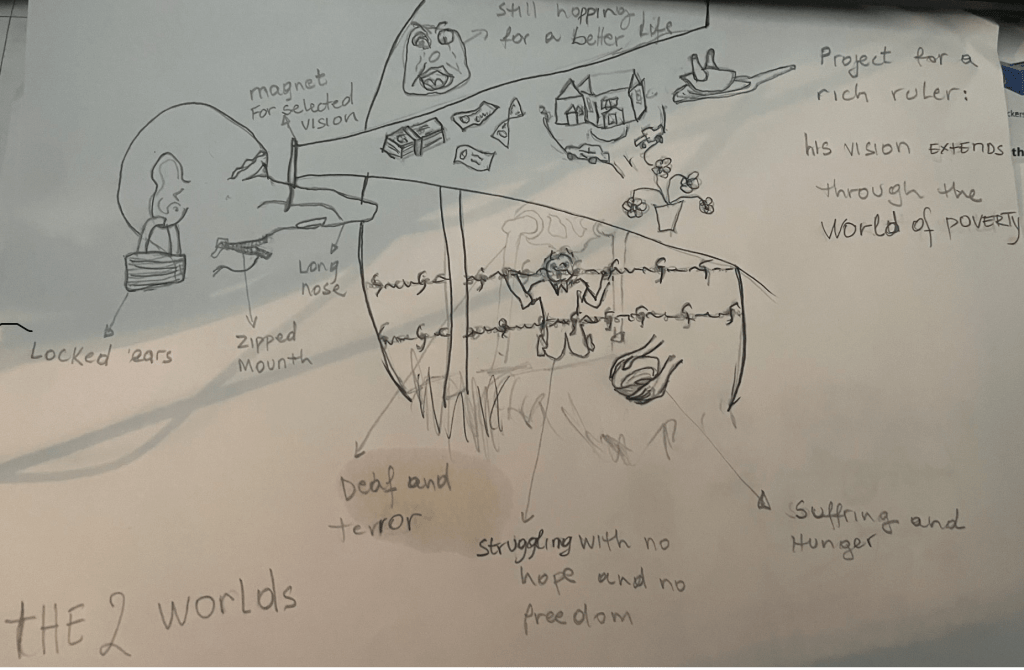 still hopping
for a better life
magnet
For selected
vision
Project for a
rich ruler:
his vision EXTENDS
through the
WORLD of POVERTY
Long
nose
Zipped
Mounth
Locked ears
Deaf and
terror
Struggling with no
hope and no
freedom
Suffring and
Hunger
tHE 2 worlds